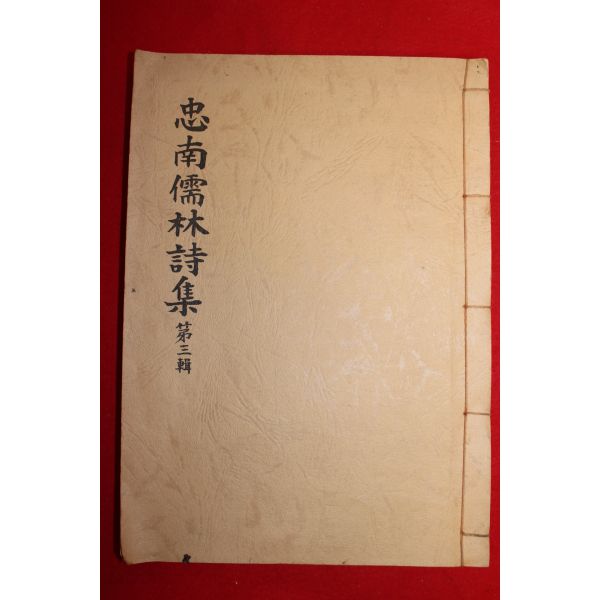 忠南儒林詩集 第三輯